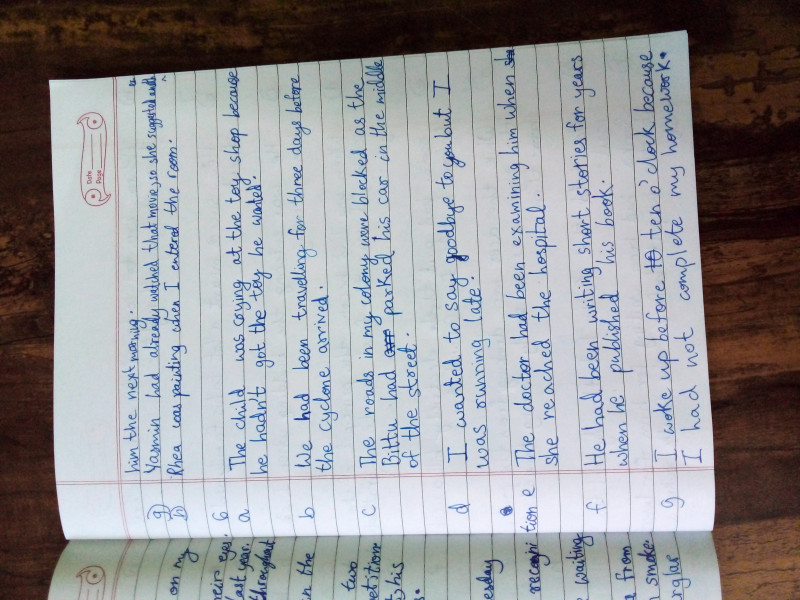 Date
Page
him the next morning.
g) Yasmin had already watched that movie, so she suggested
h) Rhea was painting when I entered the room.
6
a The child was crying at the toy shop because
he hadn't got the toy he wanted.
b We had been travelling for three days before
the cyclone arrived.
c The roads in my colony were blocked as the
Bittu had parked his car in the middle
of the street.
d I wanted to say goodbye to you but I
was running late.
e The doctor had been examining him when
she reached the hospital.
f He had been writing short stories for years
when he published his book.
g I woke up before ten o'clock because
I had not complete my homework.
on my
eir eye.
last year.
throughout
in the
two
his
esday
tion
waiting
a from
smoke.